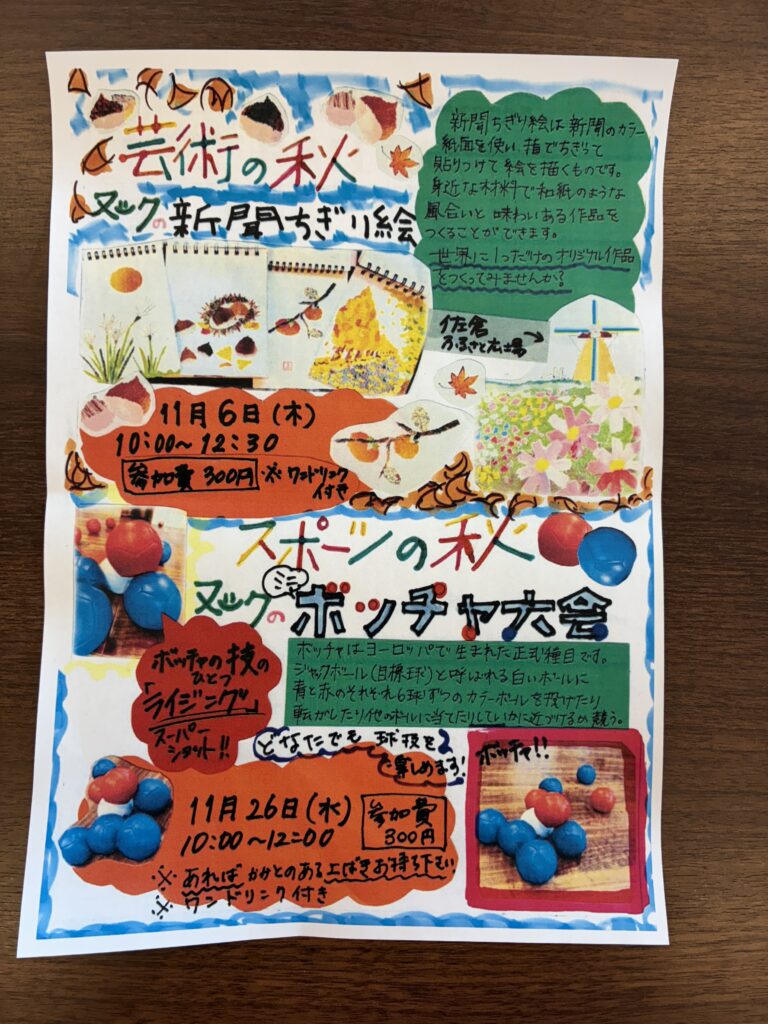 芸術の秋
ヌックの新聞ちぎり絵
新聞ちぎり絵は新聞のカラー
紙面を使い、指でちぎって
貼りつけて絵を描くものです。
身近な材料で和紙のような
風合いと味わいある作品を
つくることができます。
世界に1つだけのオリジナル作品
をつくってみませんか?
佐倉
ふるさと広場
11月6日(木)
10:00~12:30
参加費 300円 ※ワンドリンク
付き
スポーツの秋
ヌックのボッチャ大会
ボッチャの技の
ひとつ
「ライジング」
スーパー
ショット!!
ボッチャはヨーロッパで生まれた正式種目です。
ジャックボール(目標球)と呼ばれる白いボールに
青と赤のそれぞれ6球ずつのカラーボールを投げたり
転がしたり他のボールに当てたりしていかに近づけるか競う。
どなたでも球技を
楽しめます!
ボッチャ!!
11月26日(水)
10:00~12:00
参加費
300円
※あればかかとのある上ばきお持ち下さい
※ワンドリンク付き